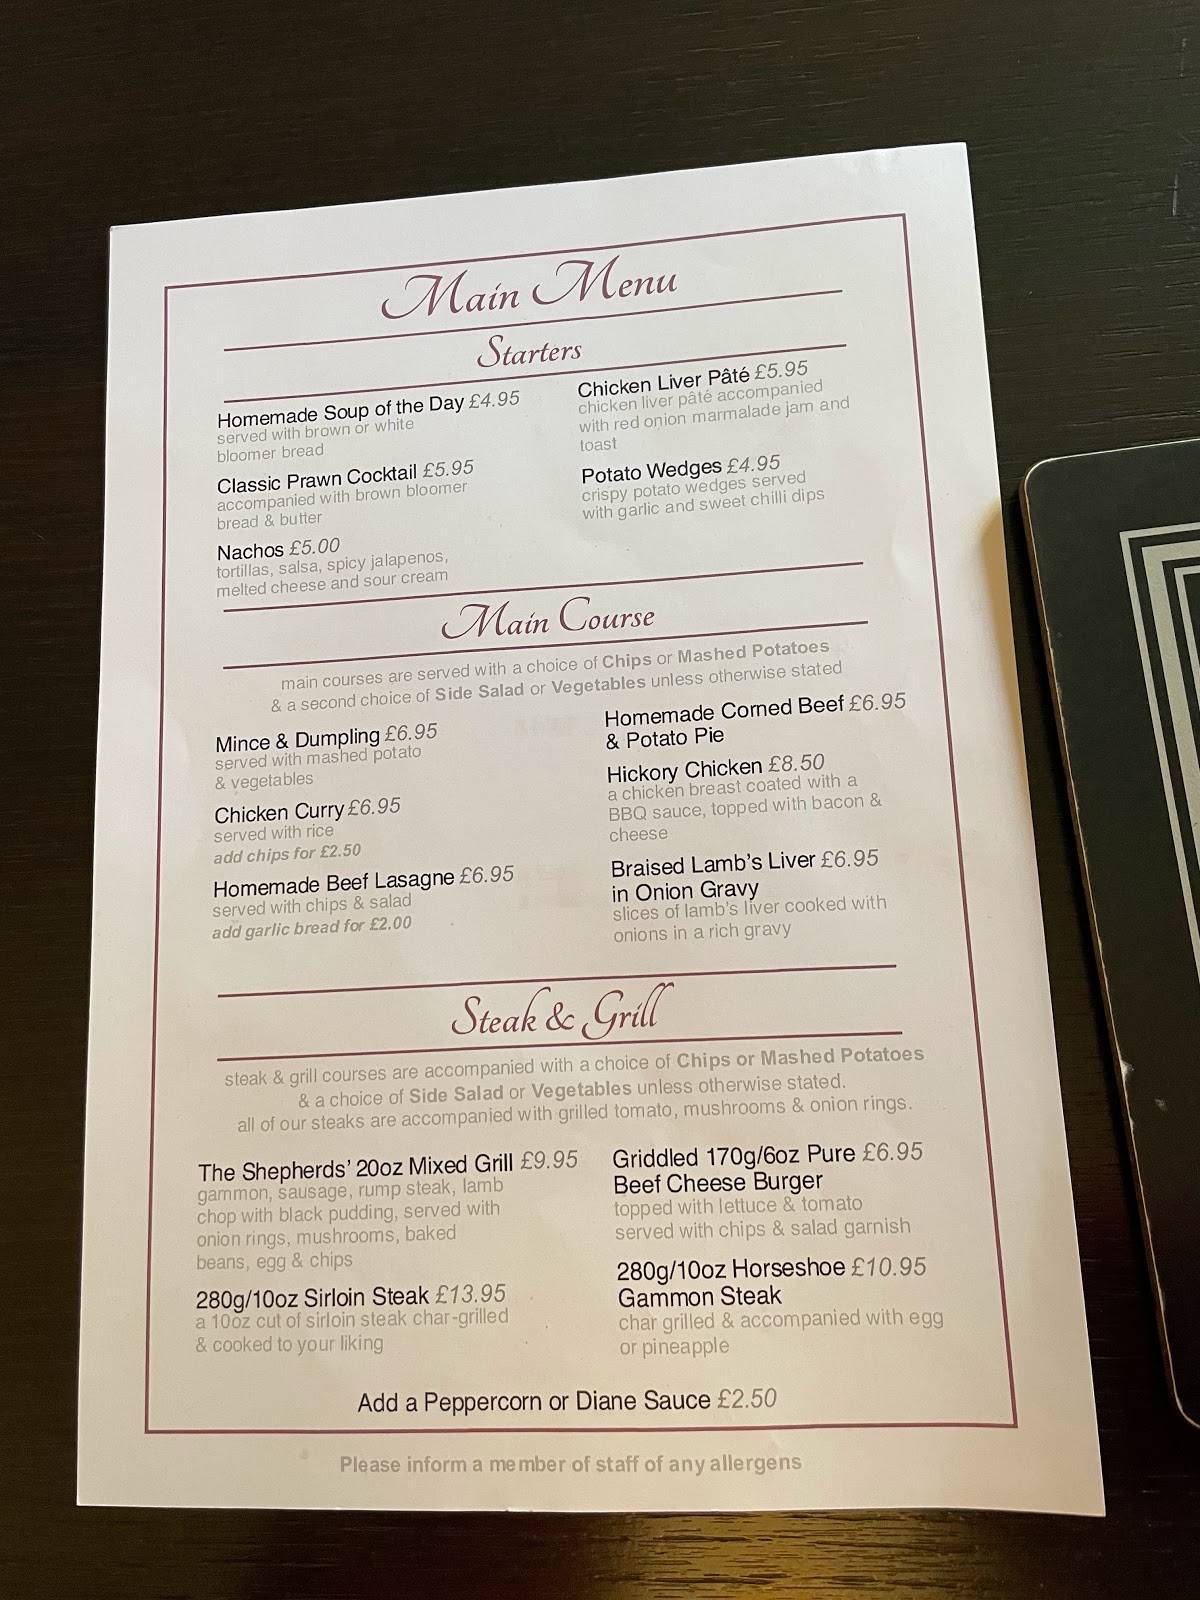 Main Menu
Starters
Homemade Soup of the Day £4.95
served with brown or white
bloomer bread
Classic Prawn Cocktail £5.95
accompanied with brown bloomer
bread & butter
Nachos £5.00
tortillas, salsa, spicy jalapenos,
melted cheese and sour cream
Chicken Liver Pâté £5.95
chicken liver pâté accompanied
with red onion marmalade jam and
toast
Potato Wedges £4.95
crispy potato wedges served
with garlic and sweet chilli dips
Main Course
main courses are served with a choice of Chips or Mashed Potatoes
& a second choice of Side Salad or Vegetables unless otherwise stated
Mince & Dumpling £6.95
served with mashed potato
& vegetables
Chicken Curry £6.95
served with rice
add chips for £2.50
Homemade Beef Lasagne £6.95
served with chips & salad
add garlic bread for £2.00
Homemade Corned Beef £6.95
& Potato Pie
Hickory Chicken £8.50
a chicken breast coated with a
BBQ sauce, topped with bacon &
cheese
Braised Lamb's Liver £6.95
in Onion Gravy
slices of lamb's liver cooked with
onions in a rich gravy
Steak & Grill
steak & grill courses are accompanied with a choice of Chips or Mashed Potatoes
& a choice of Side Salad or Vegetables unless otherwise stated.
all of our steaks are accompanied with grilled tomato, mushrooms & onion rings.
The Shepherds' 20oz Mixed Grill £9.95
gammon, sausage, rump steak, lamb
chop with black pudding, served with
onion rings, mushrooms, baked
beans, egg & chips
280g/10oz Sirloin Steak £13.95
a 10oz cut of sirloin steak char-grilled
& cooked to your liking
Griddled 170g/6oz Pure £6.95
Beef Cheese Burger
topped with lettuce & tomato
served with chips & salad garnish
280g/10oz Horseshoe £10.95
Gammon Steak
char grilled & accompanied with egg
or pineapple
Add a Peppercorn or Diane Sauce £2.50
Please inform a member of staff of any allergens